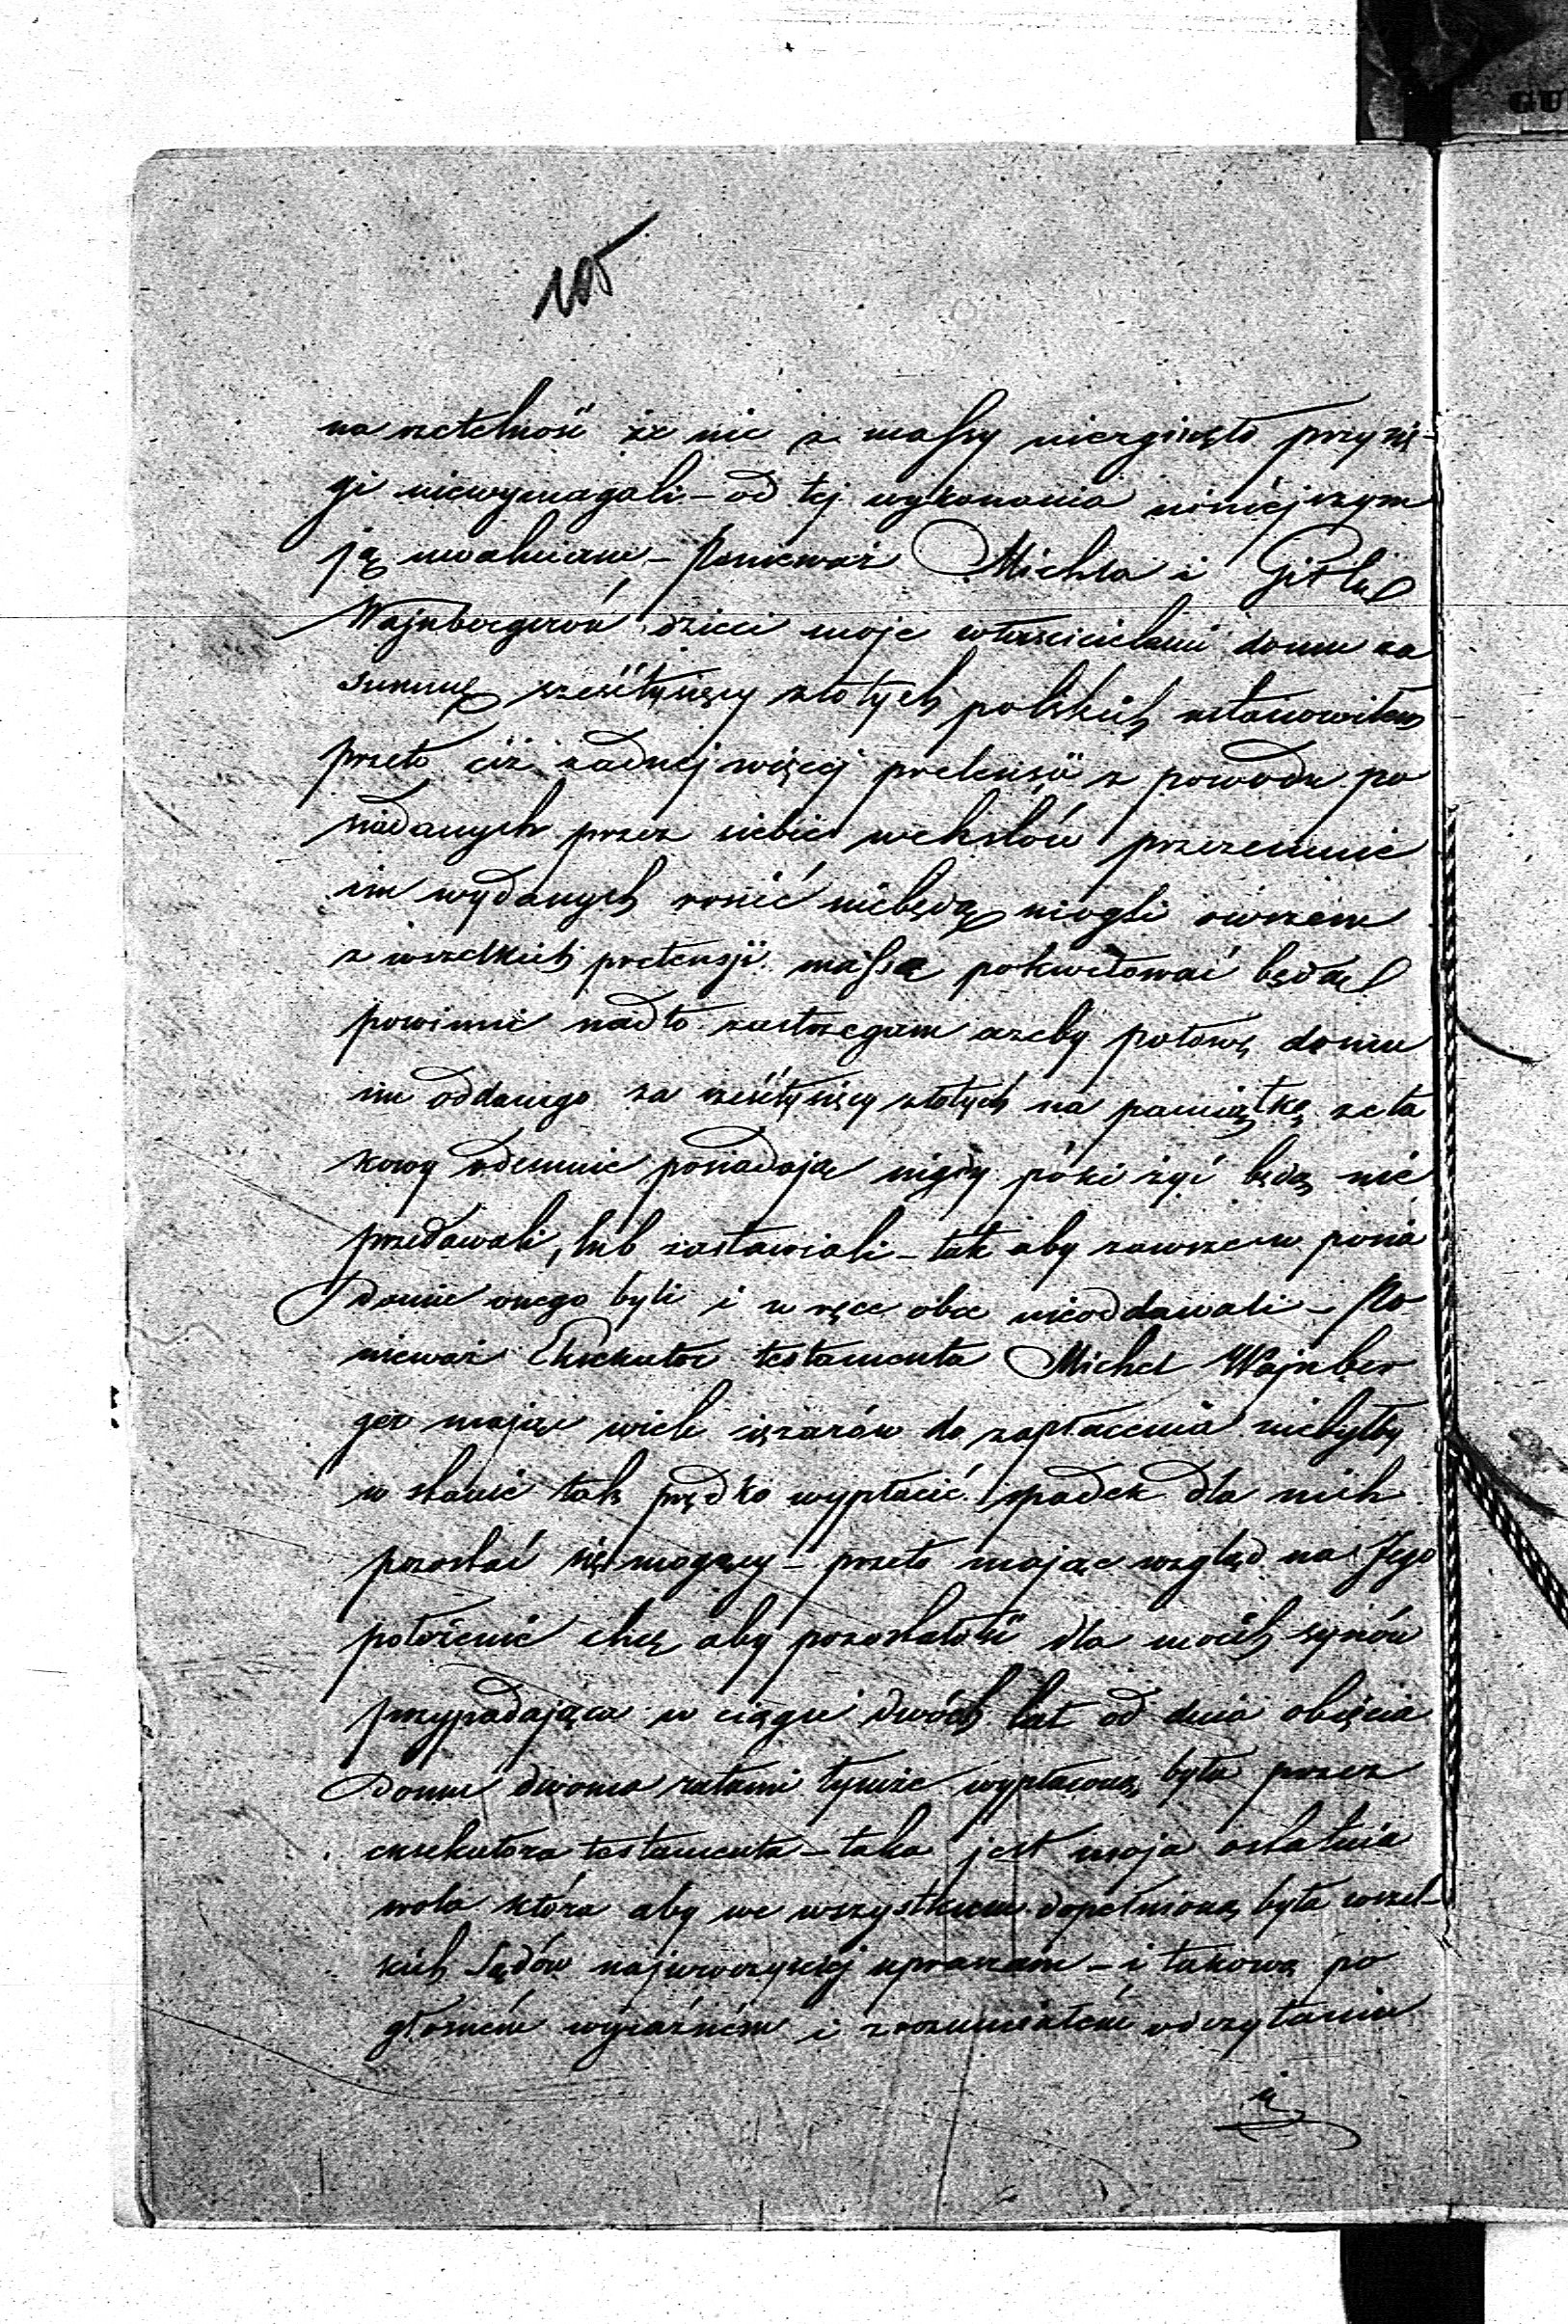 105
GU
na rzetelność że nic z massy niezginęło przysię-
gi niewymagali – od tej wykonania niniejszym
ją uwalniam – Ponieważ Michla i Gitlę
Wajnbergerów dzieci moje właścicielami domu za
summę sześćtysięcy złotych polskich ustanowiłem
przeto ciż żadnej więcej pretensji z powodu po
siadanych przez siebie wekslów przezemnie
im wydanych rościć niebędą mogli owszem
z wszelkich pretensji massę pokwitować będą
powinni nadto zastrzegam ażeby połowę domu
im oddanego za sześćtysięcy złotych na pamiątkę że ta
kowy odemnie posiadają nigdy póki żyć będą nie
przedawali, lub zastawiali – tak aby zawsze w posia
danie onego byli i w ręce obce nieoddawali – Po
nieważ Exekutor testamentu Michel Wajnber
ger mając wiele ciężarów do zapłacenia niebyłby
w stanie tak prędko wypłacić spadek dla nich
pozostać się mogący – przeto mając wzgląd na Jego
położenie chcę aby pozostałość dla moich synów
przypadająca w ciągu dwóch lat od dnia objęcia
domu dwoma ratami tymże wypłaconą była przez
exekutora testamentu – taka jest moja ostatnia
wola która aby we wszystkiem dopełnioną była wszel-
kich Sądów najuroczyściej upraszam – i takową po
głośném wyraźném i zrozumiałém odczytaniu